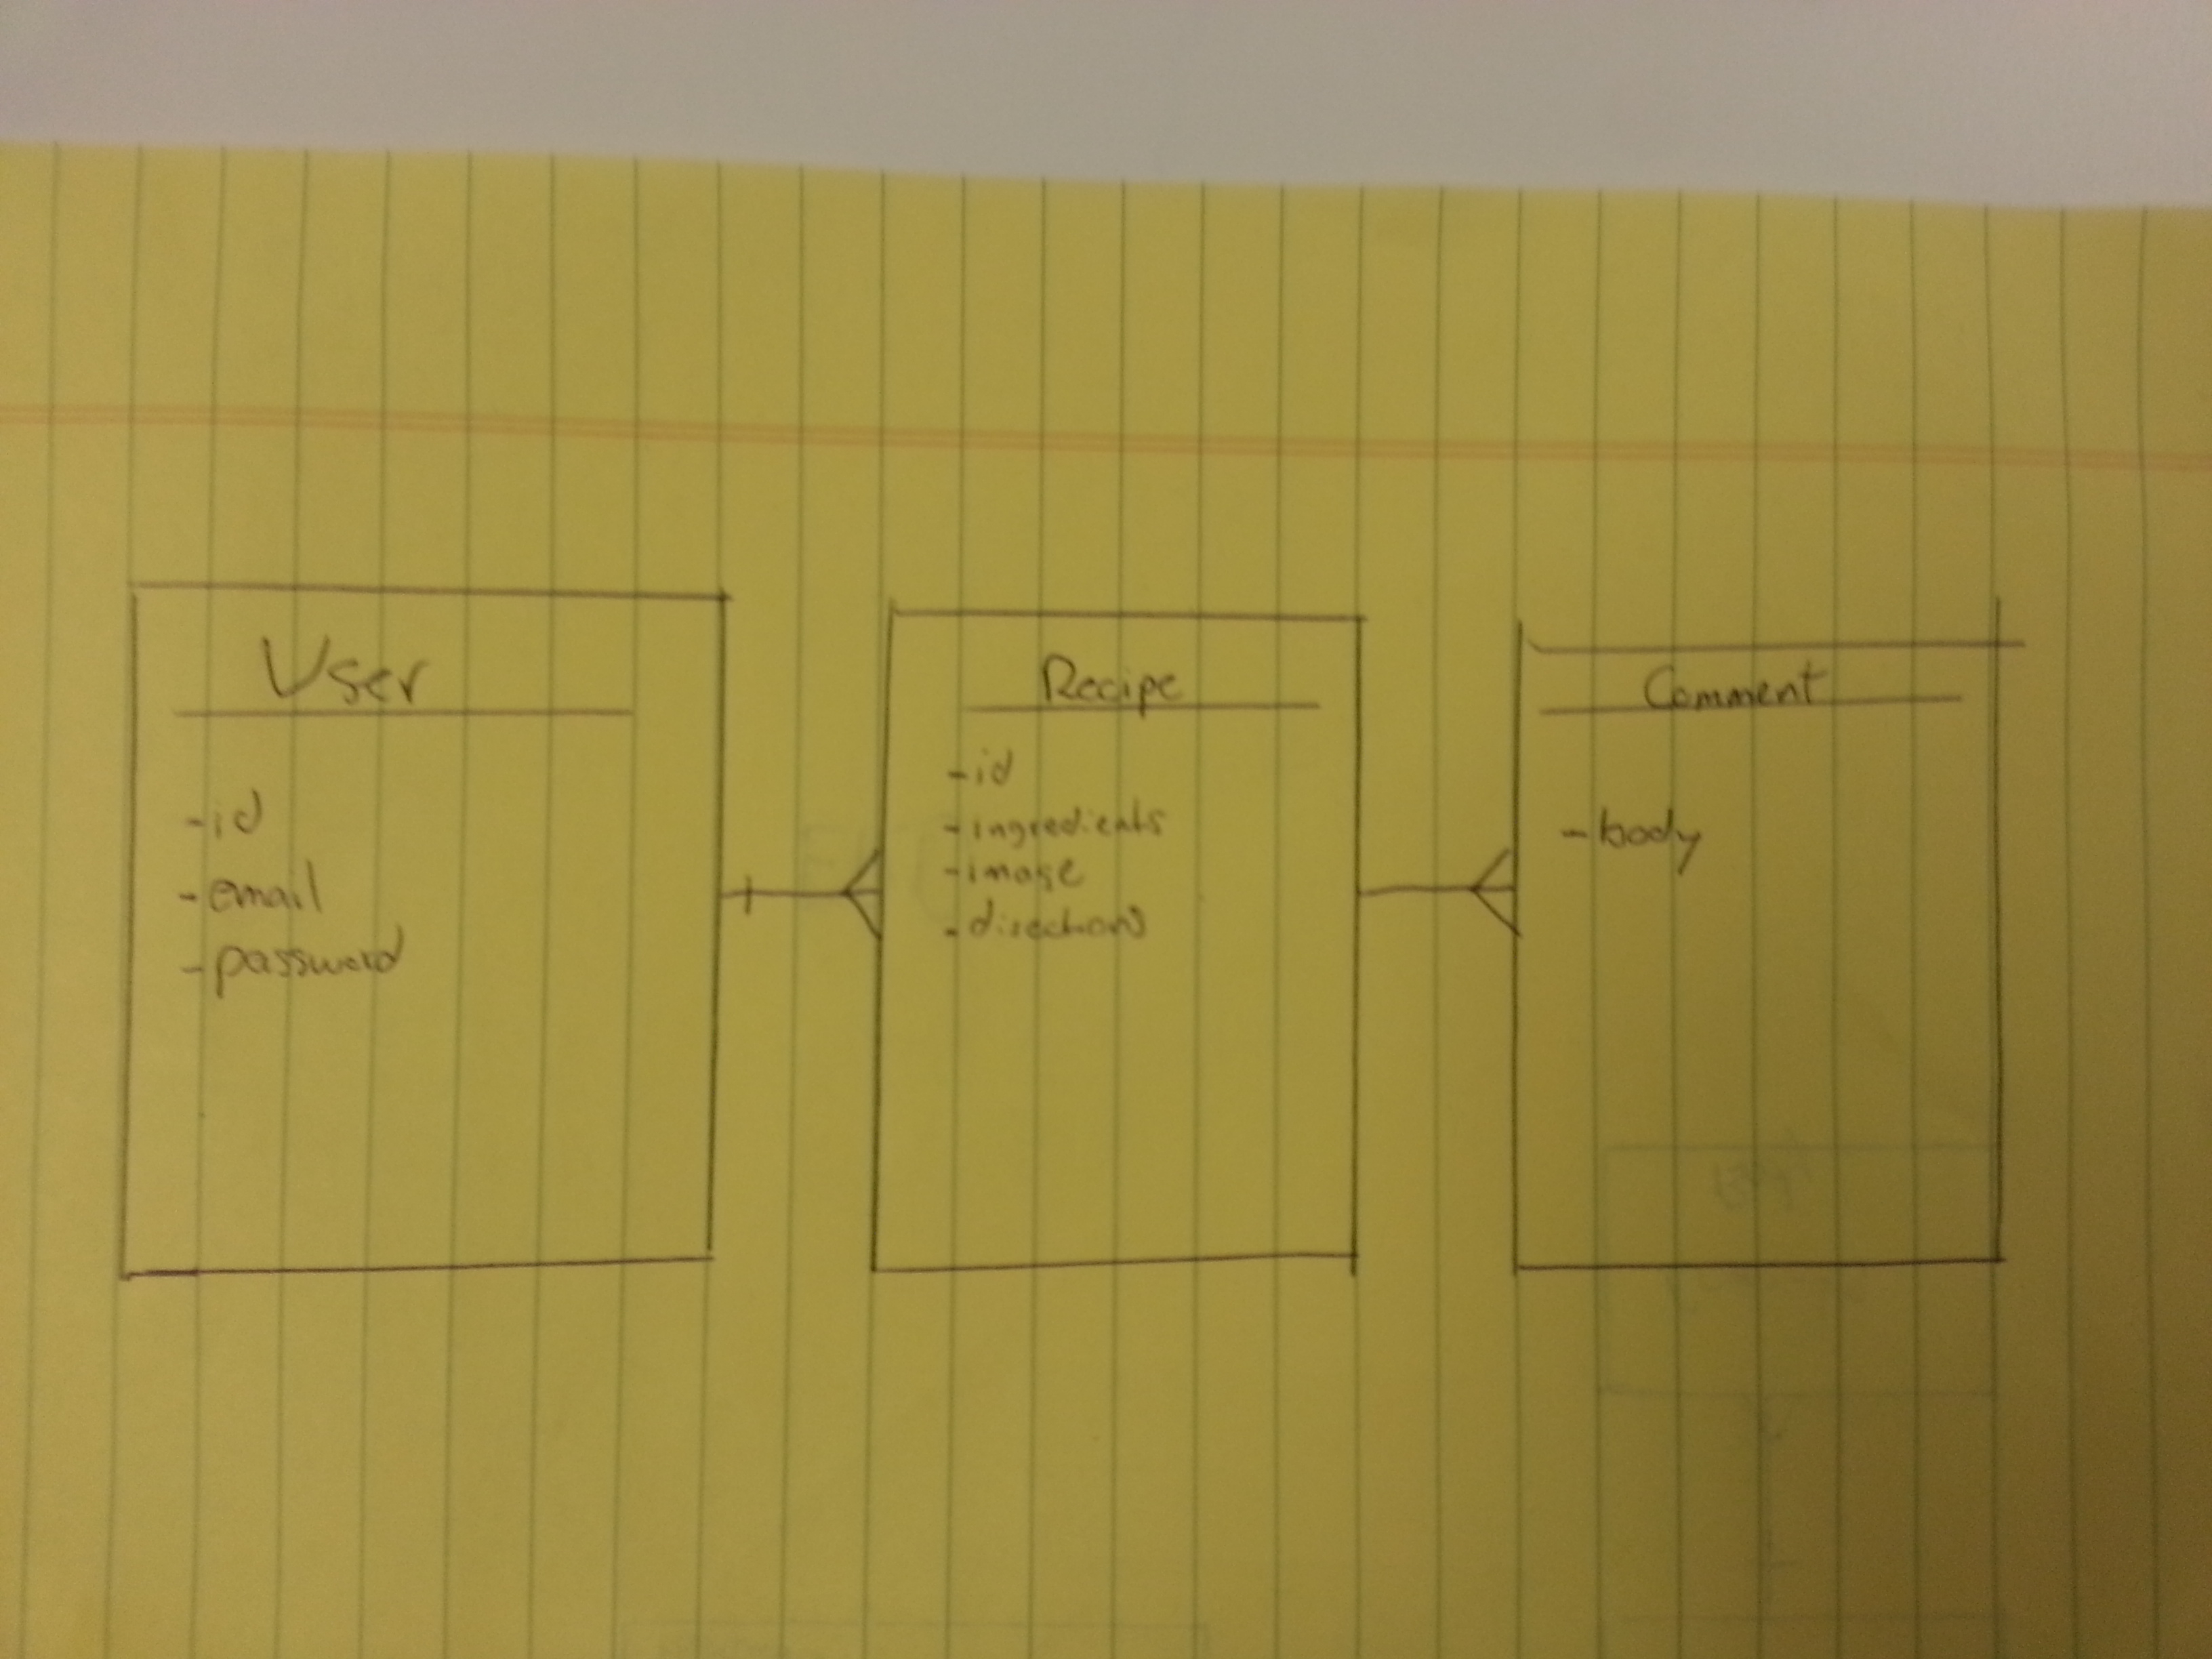 User
-id
-email
-password
Recipe
-id
-ingredients
-image
-directions
Comment
-body